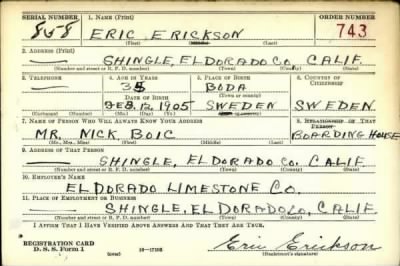 SERIAL NUMBER 1. NAME (Print) ORDER NUMBER
858 ERIC ERICKSON 743
(First) (Middle) (Last)
2. ADDRESS (Print)
— SHINGLE, EL DORADO CO., CALIF.
(Number and street or R. F. D. number) (Town) (County) (State)
3. TELEPHONE 4. AGE IN YEARS 5. PLACE OF BIRTH 6. COUNTRY OF CITIZENSHIP
— 35 BODA
DATE OF BIRTH (Town or county)
FEB. 12, 1905 SWEDEN SWEDEN
(Exchange) (Number) (Mo.) (Day) (Yr.) (State or country)
7. NAME OF PERSON WHO WILL ALWAYS KNOW YOUR ADDRESS 8. RELATIONSHIP OF THAT PERSON
MR. NICK BOIC BOARDING HOUSE
(Mr., Mrs., Miss) (First) (Middle) (Last)
9. ADDRESS OF THAT PERSON
— SHINGLE, EL DORADO CO. CALIF.
(Number and street or R. F. D. number) (Town) (County) (State)
10. EMPLOYER'S NAME
EL DORADO LIMESTONE CO.
11. PLACE OF EMPLOYMENT OR BUSINESS
— SHINGLE, EL DORADO CO., CALIF
(Number and street or R. F. D. number) (Town) (County) (State)
I AFFIRM THAT I HAVE VERIFIED ABOVE ANSWERS AND THAT THEY ARE TRUE.
REGISTRATION CARD
D. S. S. Form 1 (over) Eric Erickson
(Registrant's signature)